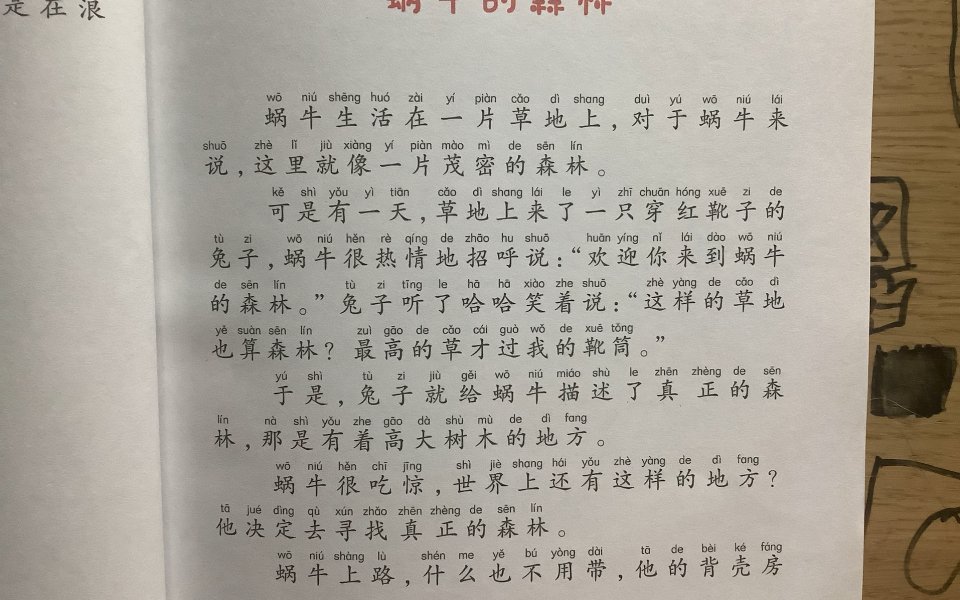 是在浪
蜗牛的森林
wō niú shēng huó zài yí piàn cǎo dì shang duì yú wō niú lái
蜗牛生活在一片草地上,对于蜗牛来
shuō zhè lǐ jiù xiàng yí piàn mào mì de sēn lín
说,这里就像一片茂密的森林。
kě shì yǒu yì tiān cǎo dì shang lái le yì zhī chuān hóng xuē zi de
可是有一天,草地上来了一只穿红靴子的
tù zi wō niú hěn rè qíng de zhāo hu shuō huān yíng nǐ lái dào wō niú
兔子,蜗牛很热情地招呼说:“欢迎你来到蜗牛
de sēn lín tù zi tīng le hā hā xiào zhe shuō zhè yàng de cǎo dì
的森林。”兔子听了哈哈笑着说:“这样的草地
yě suàn sēn lín zuì gāo de cǎo cái guò wǒ de xuē tǒng
也算森林?最高的草才过我的靴筒。”
yú shì tù zi jiù gěi wō niú miáo shù le zhēn zhèng de sēn
于是,兔子就给蜗牛描述了真正的森
lín nà shì yǒu zhe gāo dà shù mù de dì fang
林,那是有着高大树木的地方。
wō niú hěn chī jīng shì jiè shang hái yǒu zhè yàng de dì fang
蜗牛很吃惊,世界上还有这样的地方?
tā jué dìng qù xún zhǎo zhēn zhèng de sēn lín
他决定去寻找真正的森林。
wō niú shàng lù shén me yě bú yòng dài tā de bèi ké fáng
蜗牛上路,什么也不用带,他的背壳房